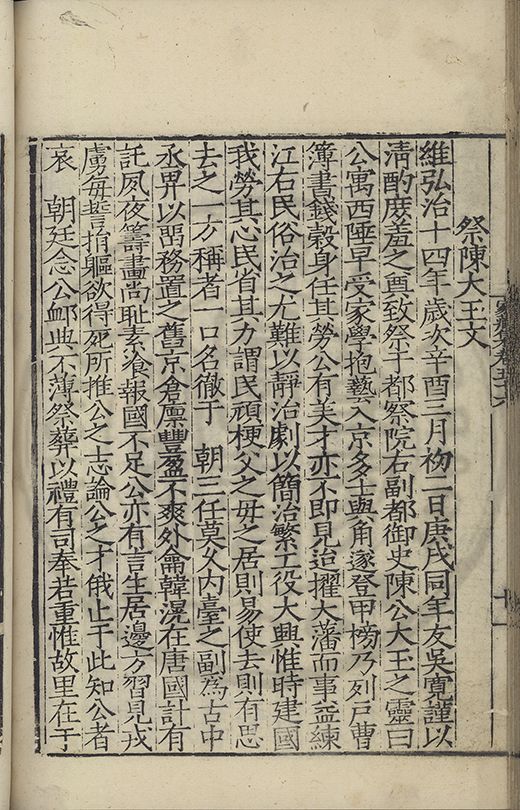 祭陳大王文
維弘治十四年歲次辛酉三月初二日庚戌同年友吳寬謹以
清酌庶羞之奠致祭于都察院右副都御史陳公大王之靈曰
公寓西陲早受家學抱藝入京多士與角逐登甲榜乃列戶曹
簿書錢穀身任其勞公有美才亦不即見迨擢大藩而事益練
江右民俗治之尤難以靜治劇以簡治繁工役大興惟時建國
我勞其心民省其力謂民頑梗父之母之居則易使去則有思
去之一方稱者一口名徹于 朝三任莫久內臺之副為古中
丞畀以留務置之舊京倉廩豐盈不爽外龠韓滉在唐國計有
託夙夜籌畫尚恥素飡報國不足公亦有言生居邊方習見戎
虜每誓捐軀欲得死所推公之志論公之才俄止于此知公者
哀 朝廷念公卹典不薄祭葬以禮有司奉若重惟故里在于